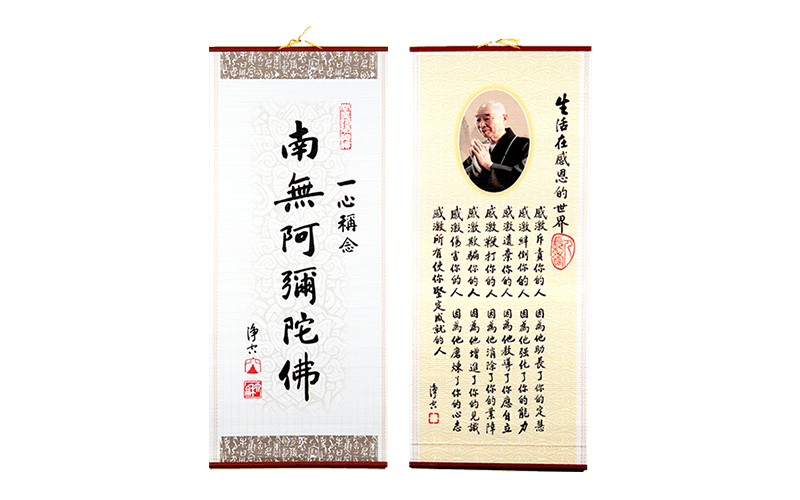 一心稱念
南無阿彌陀佛
淨空
生活在感恩的世界
感激斥責你的人 因為他助長了你的定慧
感激絆倒你的人 因為他強化了你的能力
感激遺棄你的人 因為他教導了你應自立
感激鞭打你的人 因為他消除了你的業障
感激欺騙你的人 因為他增進了你的見識
感激傷害你的人 因為他磨煉了你的心志
感激所有使你堅定成就的人
淨空